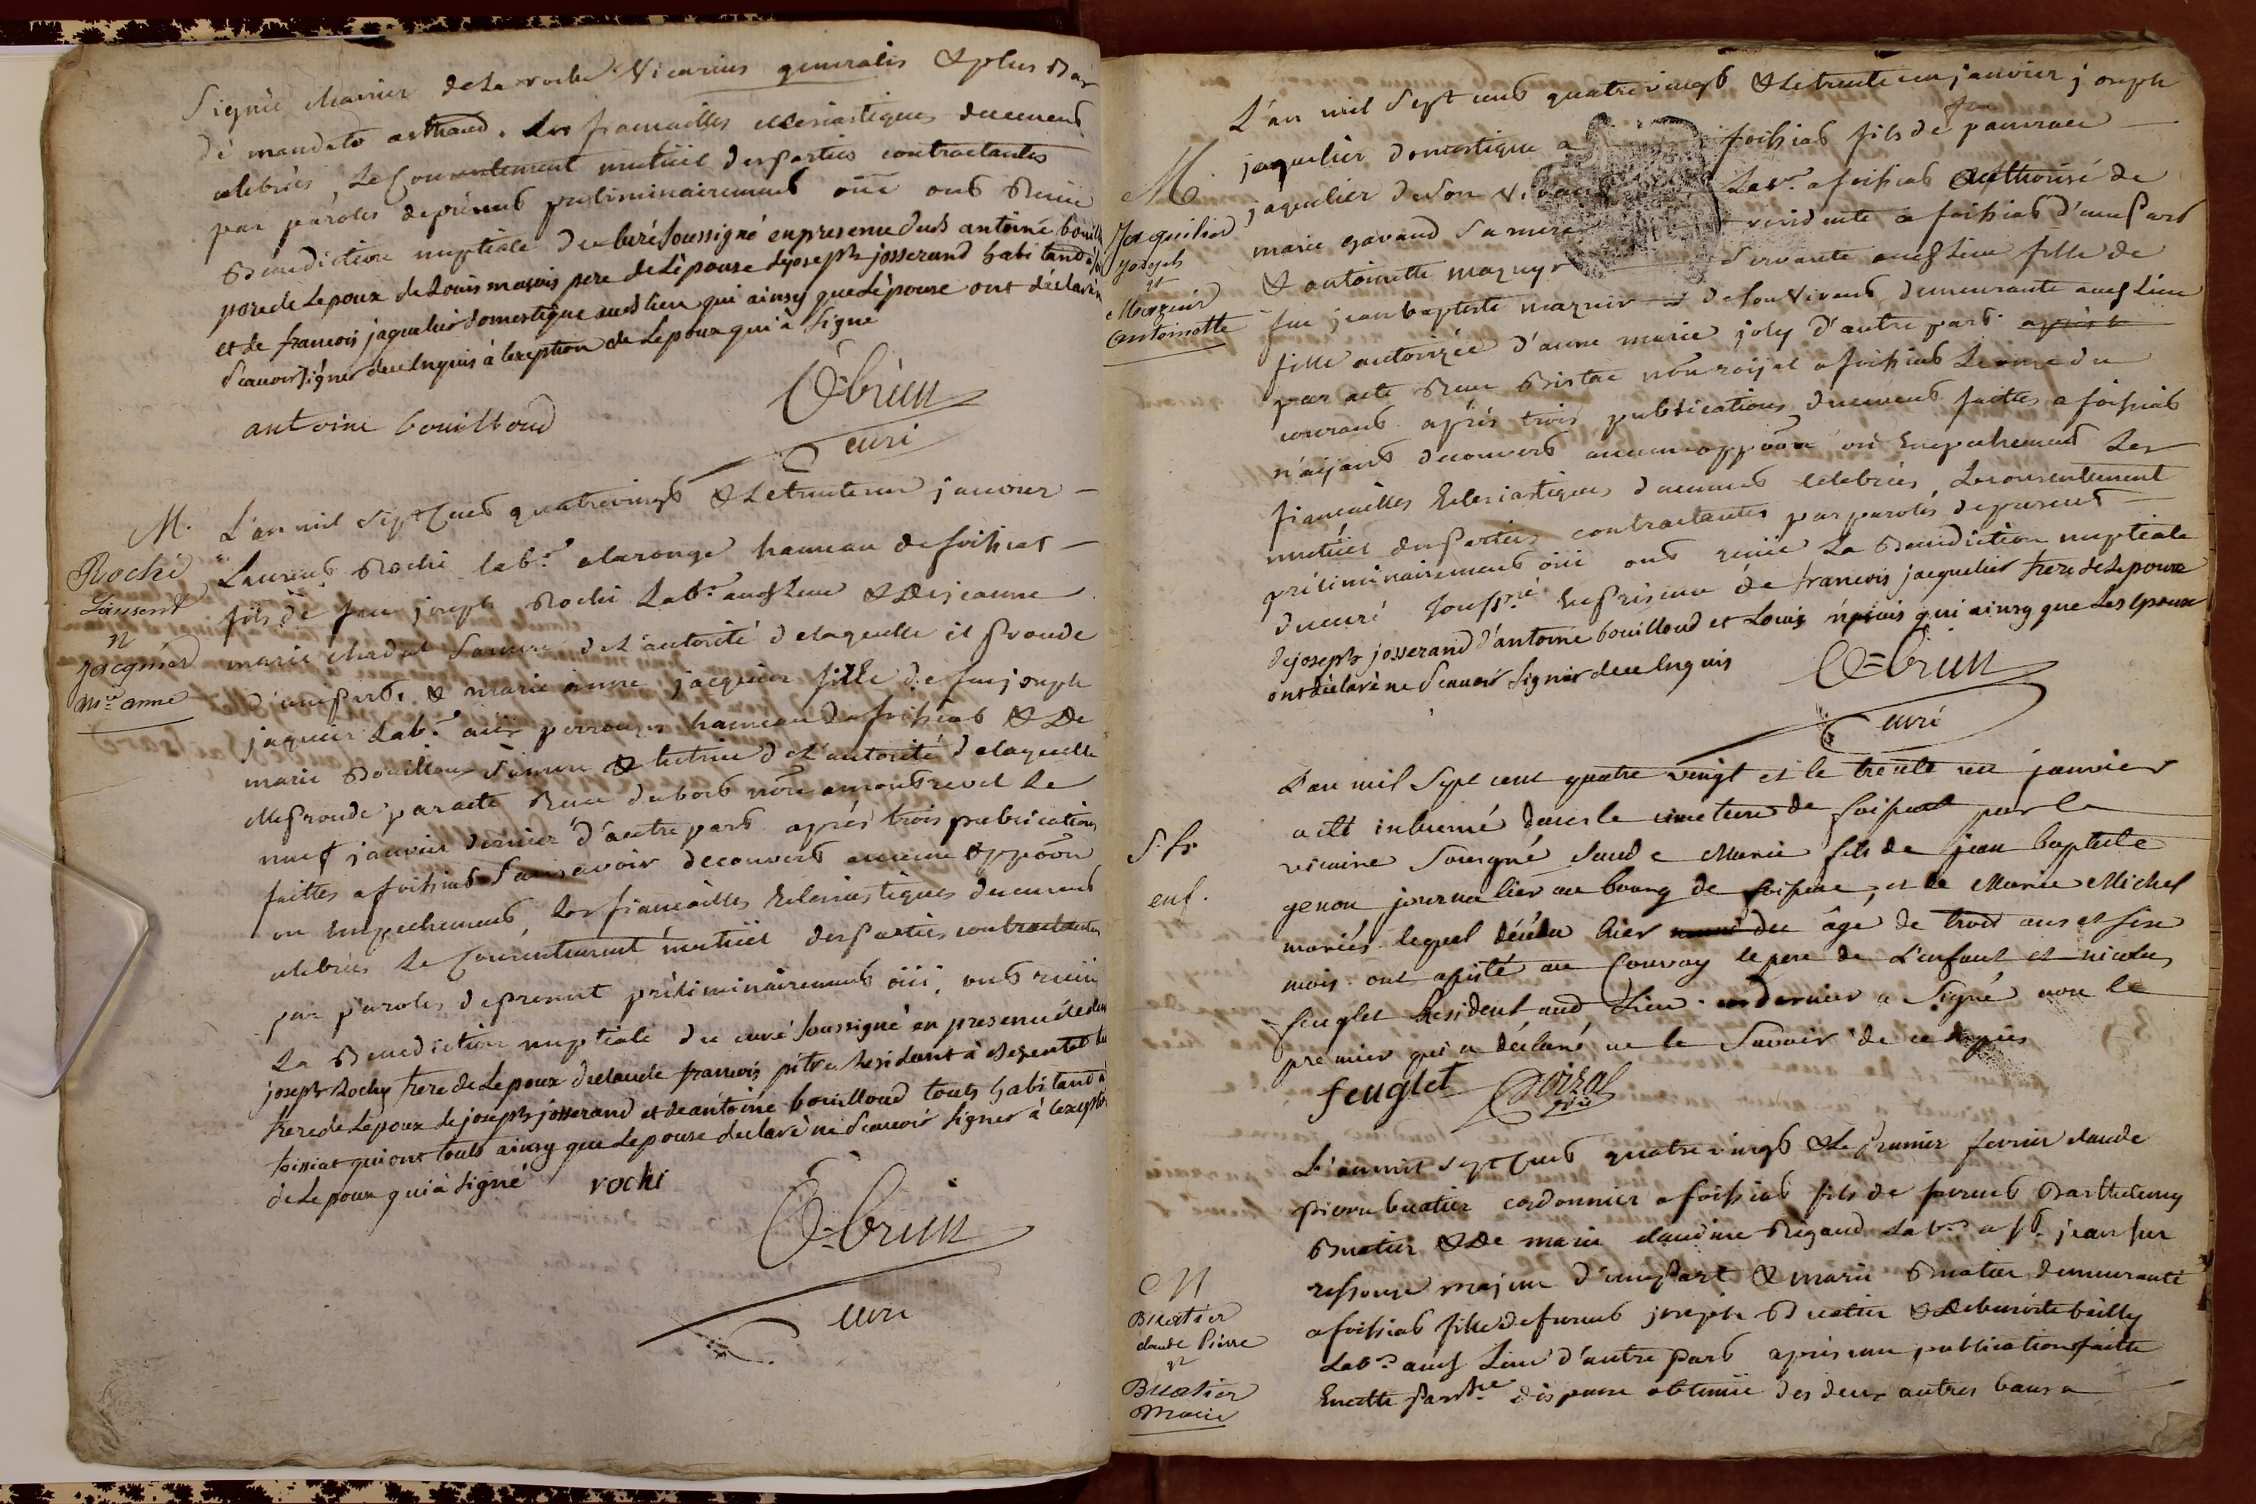 Signé charrier de La roche Vicarius generalis & plus Bas
de mandato arthaud. Les fiancailles ecclesiastiques duement
celebrées, Le Consentement mutüel des parties contractantes
par paroles de présent préliminairement oüie ont Recüe
Benediction nuptiale du Curé soussigné en presence dud antoine bouill
pere de Lepoux de Louis masuis pere de Lépouse de joseph josserand habitand a
et de francois jaquelier domestique audt lieu qui ainsy que Lépouse ont déclaré n
scavoir signer de ce Enquis à lexeption de Lepoux qui à signé
antoine bouilloud
Brun
curé
M.
Rochi
Laurent
et
jacquier
m.ie anne
L'an mil Sept Cent quatrevingt & Le trente un janvier
Laurent Rochi lab.r a laronge hameau de foissiat
fils de feu joseph Rochi Lab.r aud Lieu & De jeanne
marie chardal sa mere de L'autorité de laquelle il procede
d'une part. & marie anne jacquier fille de feu joseph
jaquier Lab.r aux perrouzes hameau de foissiat & De
marie Bouilloux sa mere & tutrice de L'autorité de laquelle
elle procede par acte Recu dubost nõre a montrevel Le
neuf janvier dernier d'autre part après trois publications
faittes a foissiat sans avoir decouvert aucune oppõõn
ou Empechement, Les fiancailles Eclesiastiques duement
celebrées Le Consentement mutüel des parties contractantes
par paroles de present préliminairement oüi, ont recüe
La Benediction nuptiale du curé soussigné en presence de
joseph Rochy frere de Lepoux de claude francois pitre Residant à
frere de Lepoux de joseph josserand et de antoine bouilloud touts habitand a
foissiat qui ont touts ainsy que Lepouse declaré ne Scavoir signer à lexeption
de Lepoux qui à signé rochi
Brun
curé
M.
Jaquelier
joseph
et
Mazuir
antoinette
L'an mil Sept cent quatrevingt & Le trente un janvier joseph
jaquelier domestique a foissiat fils de feu pancrace
jaquelier de Son Vivant Lab.r a foissiat & authorisé de
marie gavand sa mere residente a foissiat d'une part
& antoinette mazuyr servante aud Lieu fille de
feu jean baptiste mazuir de Son Vivant demeurante aud Lieu
fille autorizée d'anne marie joly d'autre part
par acte Recu Bistac nõre roïyal a foissiat Le onze du
courant après trois publications duement faittes a foissiat
n'ayant decouvert aucune oppõõn ou Empechement Les
fiancailles Eclesiastiques duement celebrées, Le consentement
mutüel des parties contractantes par paroles de present
préliminairement oüi ont reçüe La Benediction nuptiale
du curé souss.né En présence de francois jacquelier frere de Lepoux
de joseph josserand d'antoine bouilloud et Louis qui ainsy que Les Epoux
ont déclaré ne Scavoir signer de ce Enquis
Brun
curé
S. fr.
enf.
L'an mil Sept cent quatre vingt et le trente un janvier
a eté inhumé dans le cimetiere de foissiat par le
vicaire Sousigné Claude Marie fils de jean baptiste
genon journalier au bourg de foissiat, et de Marie Michel
mariés lequel décéda hier du âge de trois ans et six
mois. ont assisté au Convoy le pere de L'enfant et nicolas
feuglet Résident aud Lieu. ce dernier a Signé non le
premier qui a déclaré ne le Savoir de ce enquis
feuglet
L'an mil sept Cent quatre vingt & Le premier fevrier claude
pierre buatier cordonnier a foissiat fils de furent Barthelemy
Buatier & De marie claudine Rigaud Lab.rs a st. jean sur
ressouze majeur d'une part & marie Buatier demeurante
a foissiat fille de furent joseph Buatier & De benoite billy
Lab.rs aud Lieu d'autre part après une publication faitte
En cette par.sse dispense obtenüe des deux autres bans a
M
Buatier
claude Pierre
et
Buatier
Marie